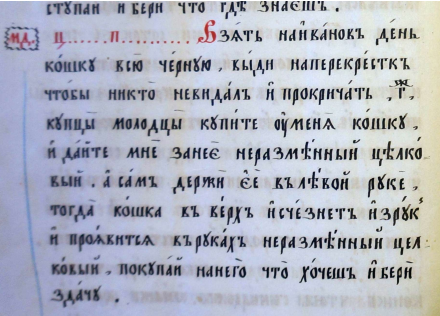 ступай и бери что гдѣ знаешъ.
мд. Ц......п........... Взять наивановъ день
кошку всю черную, выди наперекресткъ
чтобы никто невидалъ и прокричать, г҃.
купцы молодцы купите оуменя кошку,
и дайте мне занеё неразмѣнный цѣлко
вый. а самъ держи еѐ вълѣвой руке,
тогда кошка въ верхъ исчезнетъ изрук
и проявится въ рукахъ неразмѣнный цел
ковый. покупай нанего что хочешъ и бери
здачу.